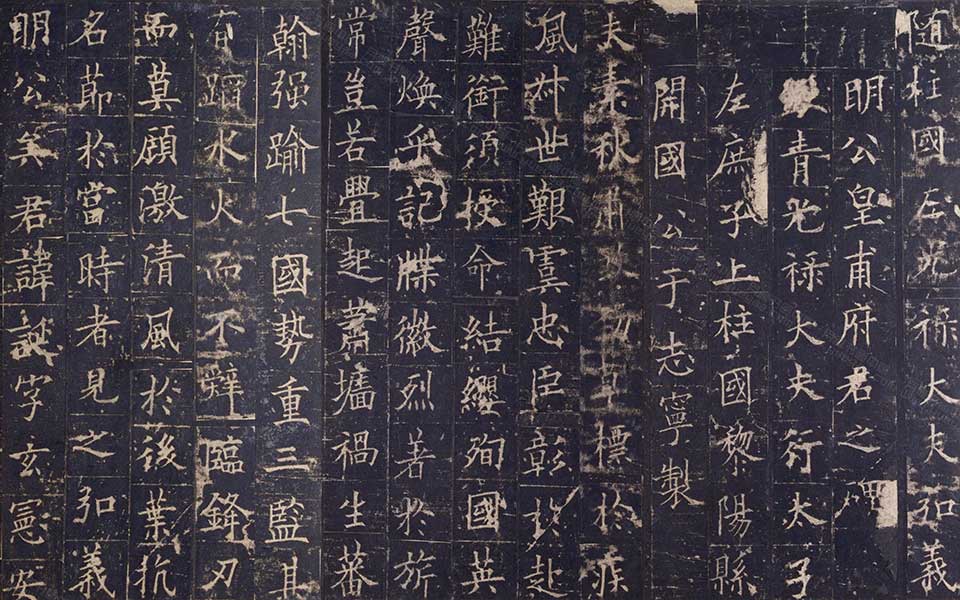 随柱國左光祿大夫弘義
明公皇甫府君之碑
青光祿大夫行太子
左庶子上柱國黎陽縣
開國公于志寧製
夫素秋肅勁草標於疾
風叔世艱虞忠臣彰於赴
難銜須授命結纓殉國英
聲煥乎記牒徽烈著於旂
常豈若舋起蕭墻禍生蕃
翰强踰七國勢重三監其
有蹈水火而不辭臨鋒刃
而莫顧激清風於後葉抗
名節於當時者見之弘義
明公矣君諱誕字玄憲安